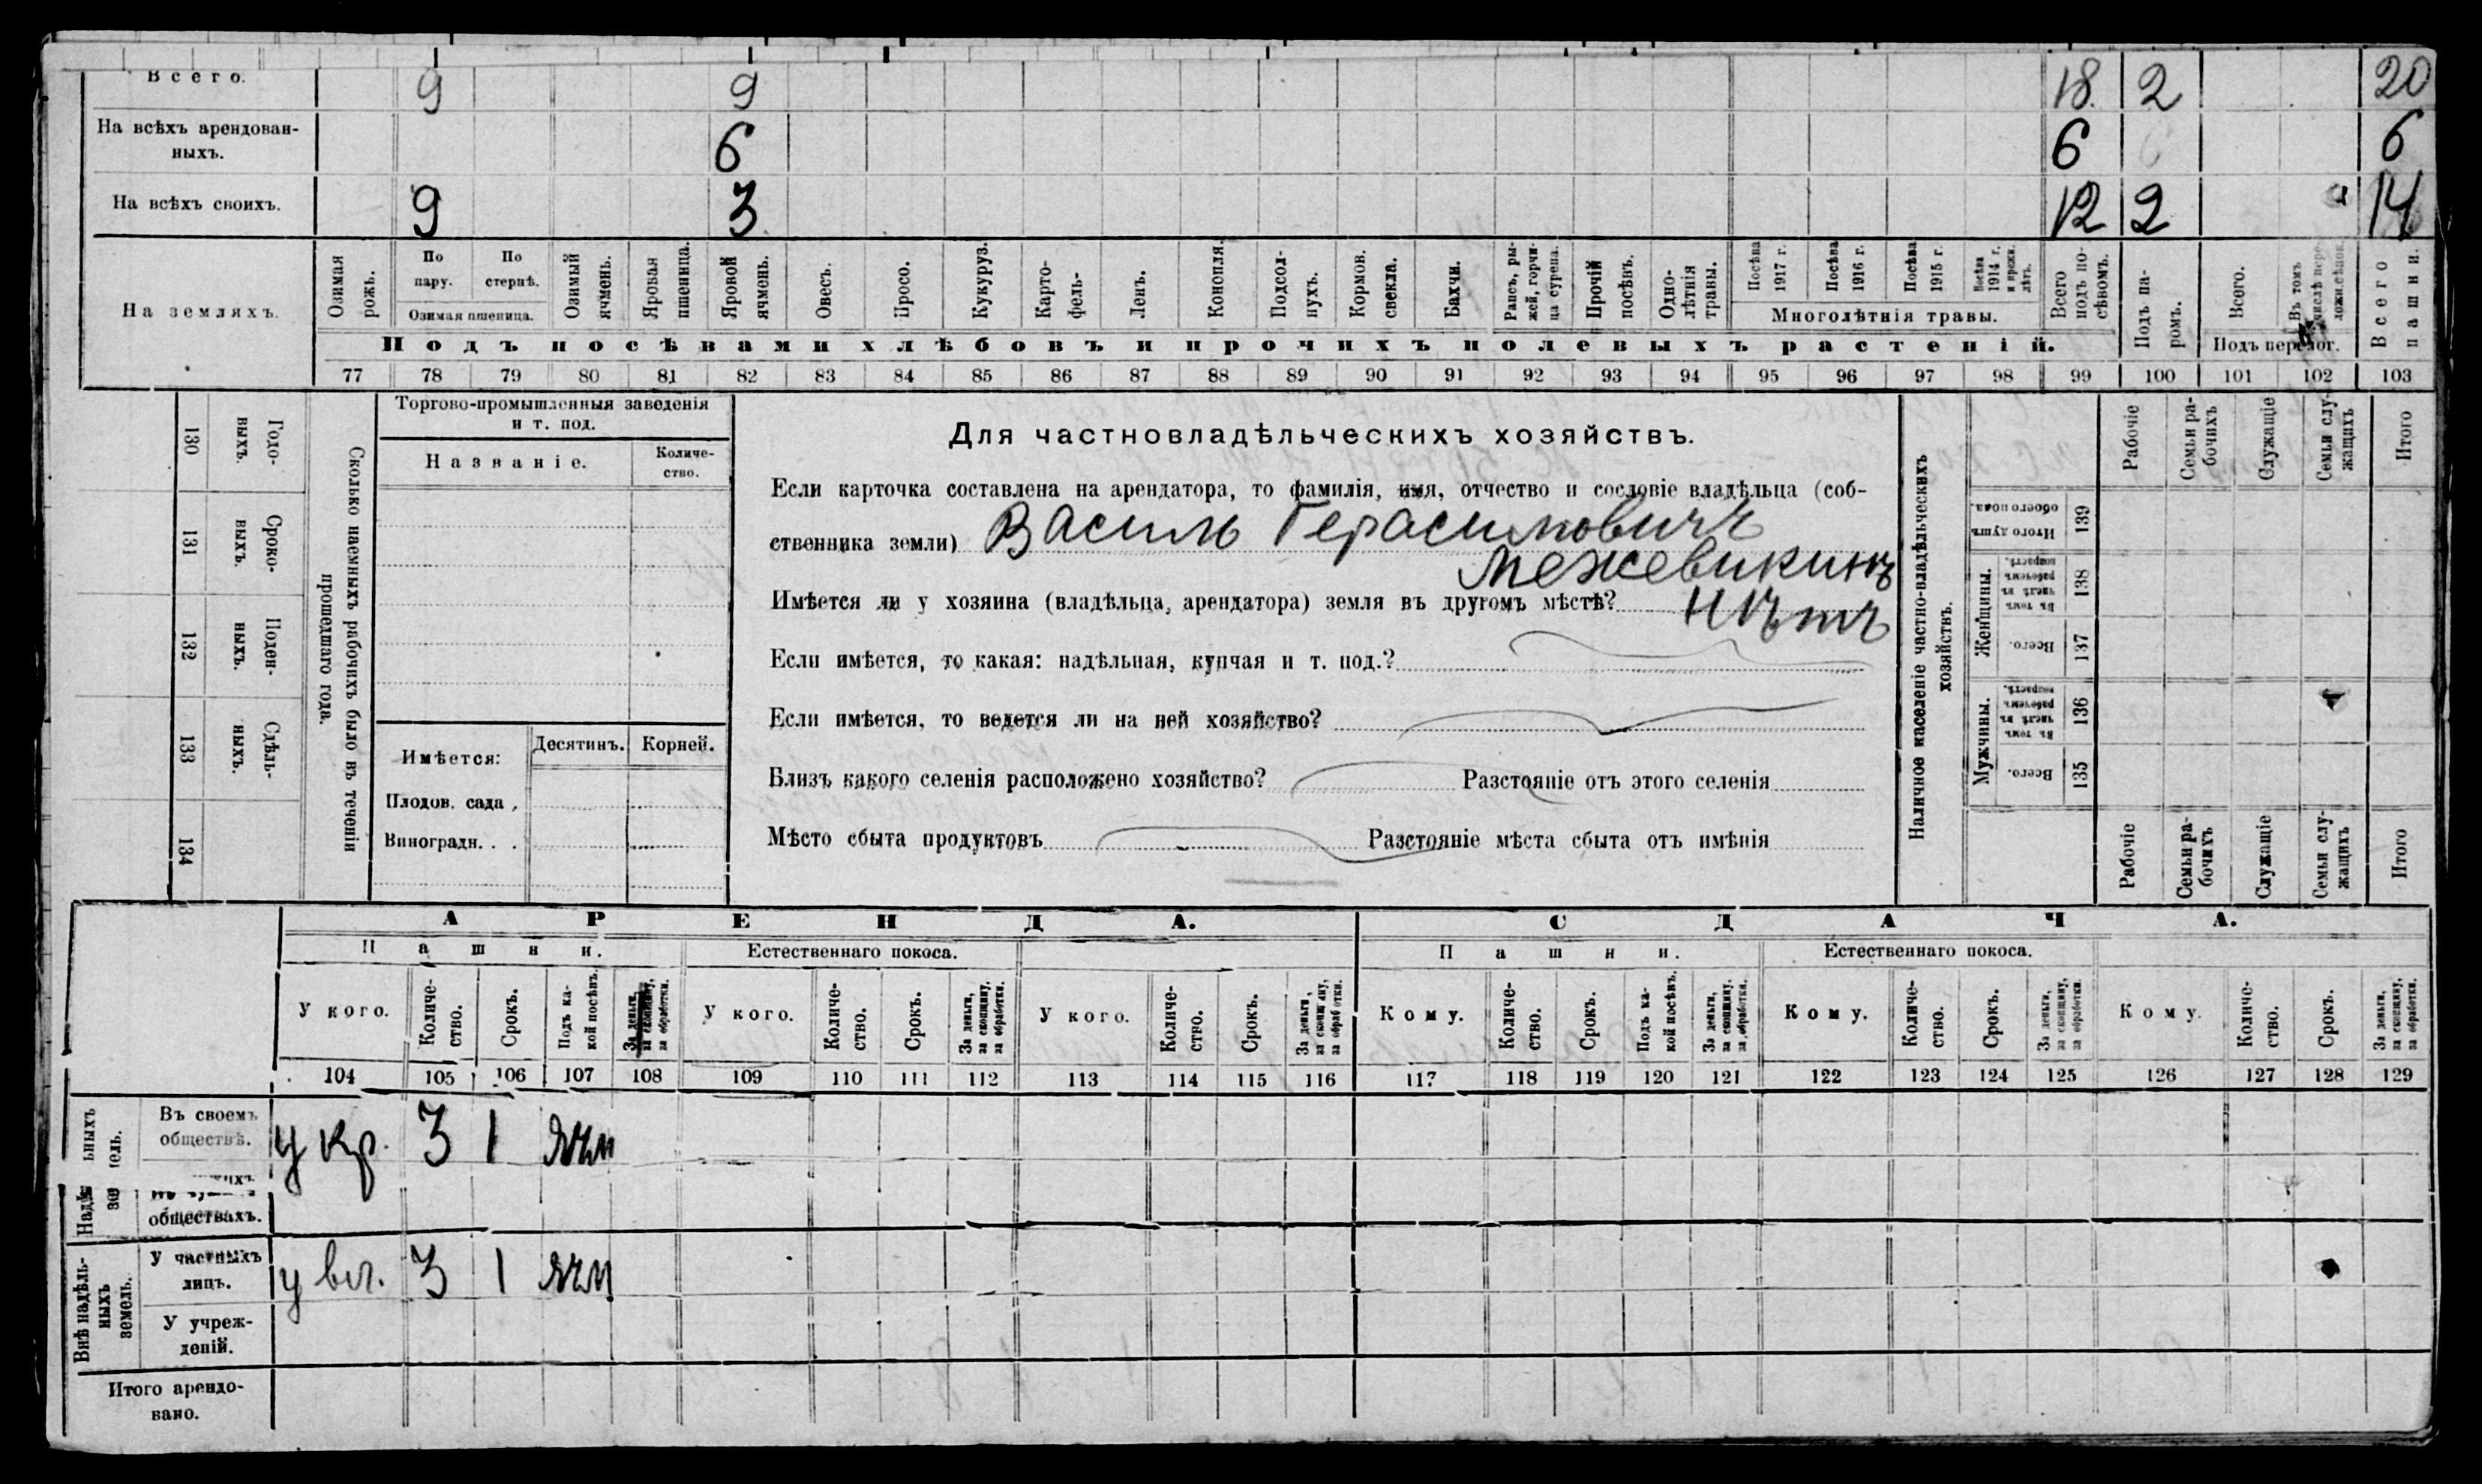 Всего. 9 9 18. 2 20
На всѣхъ арендован-
ныхъ. 6 6 6 6
На всѣхъ своихъ. 9 3 12 2 14
На земляхъ.
Озимая рожь.
По пару.
По стернѣ.
Озимая пшеница.
Озимый ячмень.
Яровая пшеница.
Яровой ячмень.
Овесъ.
Просо.
Кукуруз.
Карто-
фель-
Ленъ.
Конопля.
Подсол-
нухъ.
Кормов.
свекла.
Бахчи.
Рапсъ, ры-
жей, горчи-
ца сурепа.
Прочій
посѣвъ.
Одно-
лѣтнія
травы.
Посѣва
1917 г.
Посѣва
1916 г.
Посѣва
1915 г.
Посѣва
1914 г.
и прежн.
лѣтъ.
Многолѣтнія травы.
Всего
подъ по-
сѣвомъ.
Подъ па-
ромъ.
Всего.
Въ томъ
числѣ пере-
Подъ перелог.
Всего
пашни.
Подъ посѣвами хлѣбовъ и прочихъ полевыхъ растеній.
77 78 79 80 81 82 83 84 85 86 87 88 89 90 91 92 93 94 95 96 97 98 99 100 101 102 103
130 Годо-
выхъ.
131 Сроко-
выхъ.
132 Поден-
ныхъ.
133 Сдѣль-
ныхъ.
134
Сколько наемныхъ рабочихъ было въ теченіи
прошедшаго года.
Торгово-промышленныя заведенія
и т. под.
Названіе.
Количе-
ство.
Имѣется: Десятинъ. Корней.
Плодов. сада
Виноградн. . .
Для частновладѣльческихъ хозяйствъ.
Если карточка составлена на арендатора, то фамилія, имя, отчество и сословіе владѣльца (соб-
ственника земли) Василь Герасимовичъ
Межевикинъ
Имѣется ли у хозяина (владѣльца, арендатора) земля въ другомъ мѣстѣ? Нѣтъ
Если имѣется, то какая: надѣльная, купчая и т. под.?
Если имѣется, то ведется ли на ней хозяйство?
Близъ какого селенія расположено хозяйство? Разстояніе отъ этого селенія
Мѣсто сбыта продуктовъ Разстояніе мѣста сбыта отъ имѣнія
Наличное населеніе частно-владѣльческихъ
хозяйствъ.
Рабочіе
Семьи ра-
бочихъ
Служащіе
Семьи слу-
жащихъ
Итого
Итого душъ
обоего пола.
139
Женщины.
Въ томъ
числѣ въ
рабочемъ
возрастѣ.
138
Всего.
137
Мужчины.
Въ томъ
числѣ въ
рабочемъ
возрастѣ.
136
Всего.
135
Рабочіе
Семьи ра-
бочихъ
Служащіе
Семьи слу-
жащихъ
Итого
АРЕНДА. СДАЧА.
Пашни. Естественнаго покоса. Пашни. Естественнаго покоса.
У кого.
Количе-
ство.
Срокъ.
Подъ ка-
кой посѣвъ.
За деньги,
за скопщину,
за обработки.
У кого.
Количе-
ство.
Срокъ.
За деньги,
за скопщину,
за обработки.
У кого.
Количе-
ство.
Срокъ.
За деньги,
за скопщину,
за обработки.
Кому.
Количе-
ство.
Срокъ.
Подъ ка-
кой посѣвъ.
За деньги,
за скопщину,
за обработки.
Кому.
Количе-
ство.
Срокъ.
За деньги,
за скопщину,
за обработки.
Кому.
Количе-
ство.
Срокъ.
За деньги,
за скопщину,
за обработки.
104 105 106 107 108 109 110 111 112 113 114 115 116 117 118 119 120 121 122 123 124 125 126 127 128 129
Въ своемъ
обществѣ. у кр. 3 1 ячм
обществахъ.
Внѣ надѣль-
ныхъ
земель.
У частныхъ
лицъ. у вл. 3 1 ячм
У учреж-
деній.
Итого арендо-
вано.